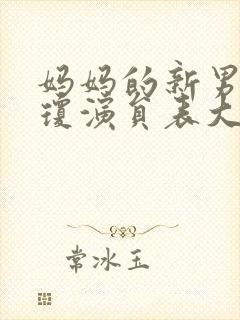 妈妈的新男
琼演员表大
常冰玉